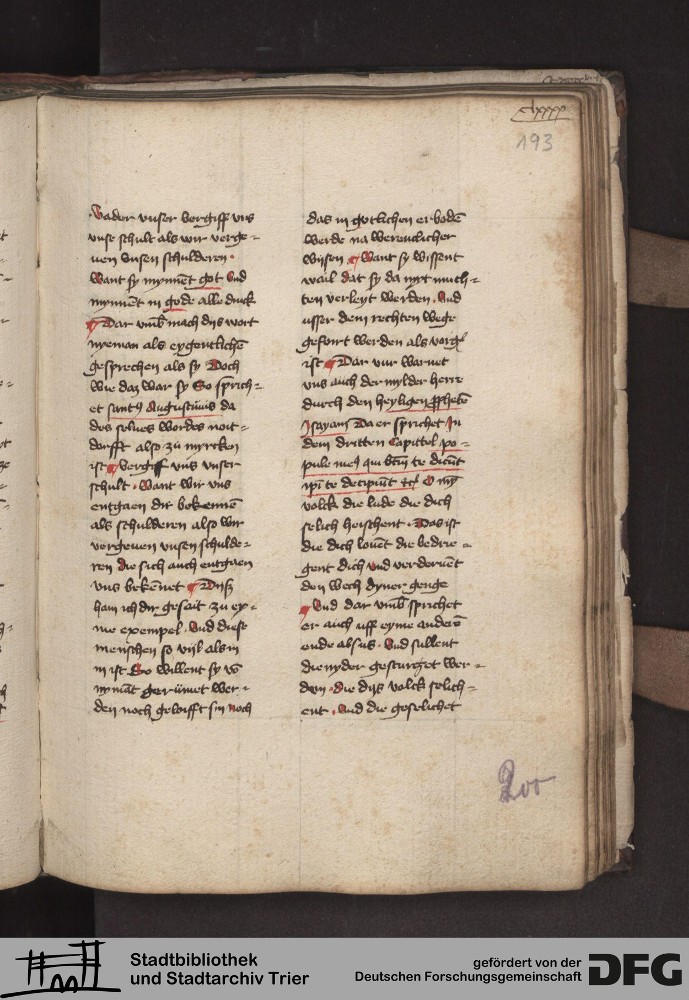 Clxxxx
193
vader vnser vergiff vns
vnse schult als wir verge-
uen vnsen schulderen.
Want sy mynnēt got vnd
mynnēt in gode alle dinck
Dar vmb mach dijs wort
nyeman als eygentlichē
gesprechen als sy Doch
wie daz war sy So sprich-
et santꝰ Augustinus da
des selues wordes noit-
dorfft also zü myrcken
ist vergiff vns vnser
schult. want wir vns
entgaen dir bekennē
als schulderen also wir
vergeuen vnsen schulde-
ren die sich auch entgaen
vns bekēnet Dijß
hain ich dir gesait zu ey-
me exempel. vnd diese
menschen so vijl als in
in ist So willent sy vō
nymāt gerümet wer-
den noch geloifft sin noch
das in gotlichen erbodē
werde na werentlicher
wijsen. Want sy wissent
wail dat sy da myt much-
ten verleyt werden. vnd
usser dem rechten wege
gefoirt werden als vorgͤ
ist Dar vur warnet
vns auch der mylder herre
durch den heyligen ꝓphetē
Jsayam Da er sprichet Jn
dem dritten Capittel po-
pule meꝰ qui btm̄ te dicūt
ipi te decipiūt etc̄ O my
volck die lude die dich
selich heischent. Das ist
die dich louēt die bedrie-
gent dich vnd verderuēt
den wech dyner genge
vnd dar vmb sprichet
er auch uff eyme anderē
ende alsus. vnd sullent
die nyder gesturtzet wer-
den. die dijs volck selich-
ent. vnd die geselichet
200
Stadtbibliothek
und Stadtarchiv Trier
gefördert von der
Deutschen Forschungsgemeinschaft
DFG